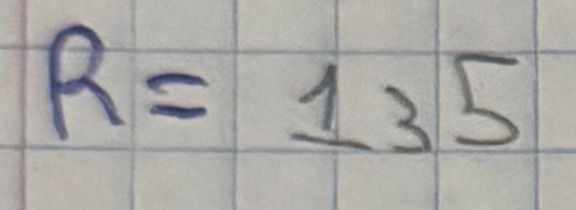 R = 135